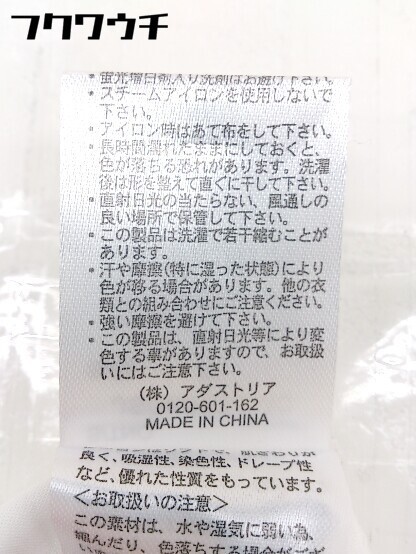 フクワウチ
・蛍光増白剤入り洗剤はお避け下さい。
・スチームアイロンを使用しないで
下さい。
・アイロン時はあて布をして下さい。
・長時間濡れたままにしておくと、
色が落ちる恐れがあります。洗濯
後は形を整えて直ぐに干して下さい。
・直射日光の当たらない、風通しの
良い場所で保管して下さい。
・この製品は洗濯で若干縮むことが
あります。
・汗や摩擦(特に湿った状態)により
色が移る場合があります。他の衣
類との組み合わせにご注意ください。
・強い摩擦を避けて下さい。
・この製品は、直射日光等により変
色する事がありますので、お取扱
いにはご注意下さい。
(株) アダストリア
0120-601-162
MADE IN CHINA
良く、吸湿性、染色性、ドレープ性
など、優れた性質をもっています。
<お取扱いの注意>
この素材は、水や湿気に弱い為、